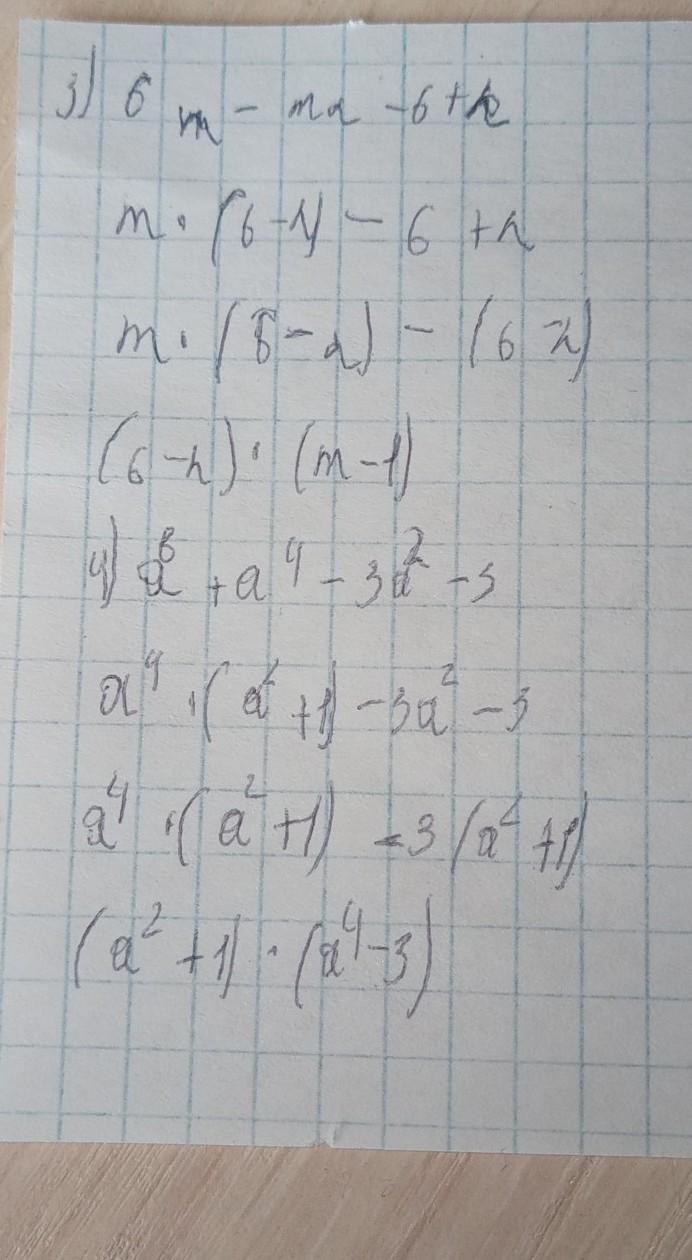 3) 6m - mn - 6 + n
m · (6 - n) - 6 + n
m · (6 - n) - (6 - n)
(6 - n) · (m - 1)
4) a⁶ + a⁴ - 3a² - 3
a⁴ · (a² + 1) - 3a² - 3
a⁴ · (a² + 1) - 3 (a² + 1)
(a² + 1) · (a⁴ - 3)